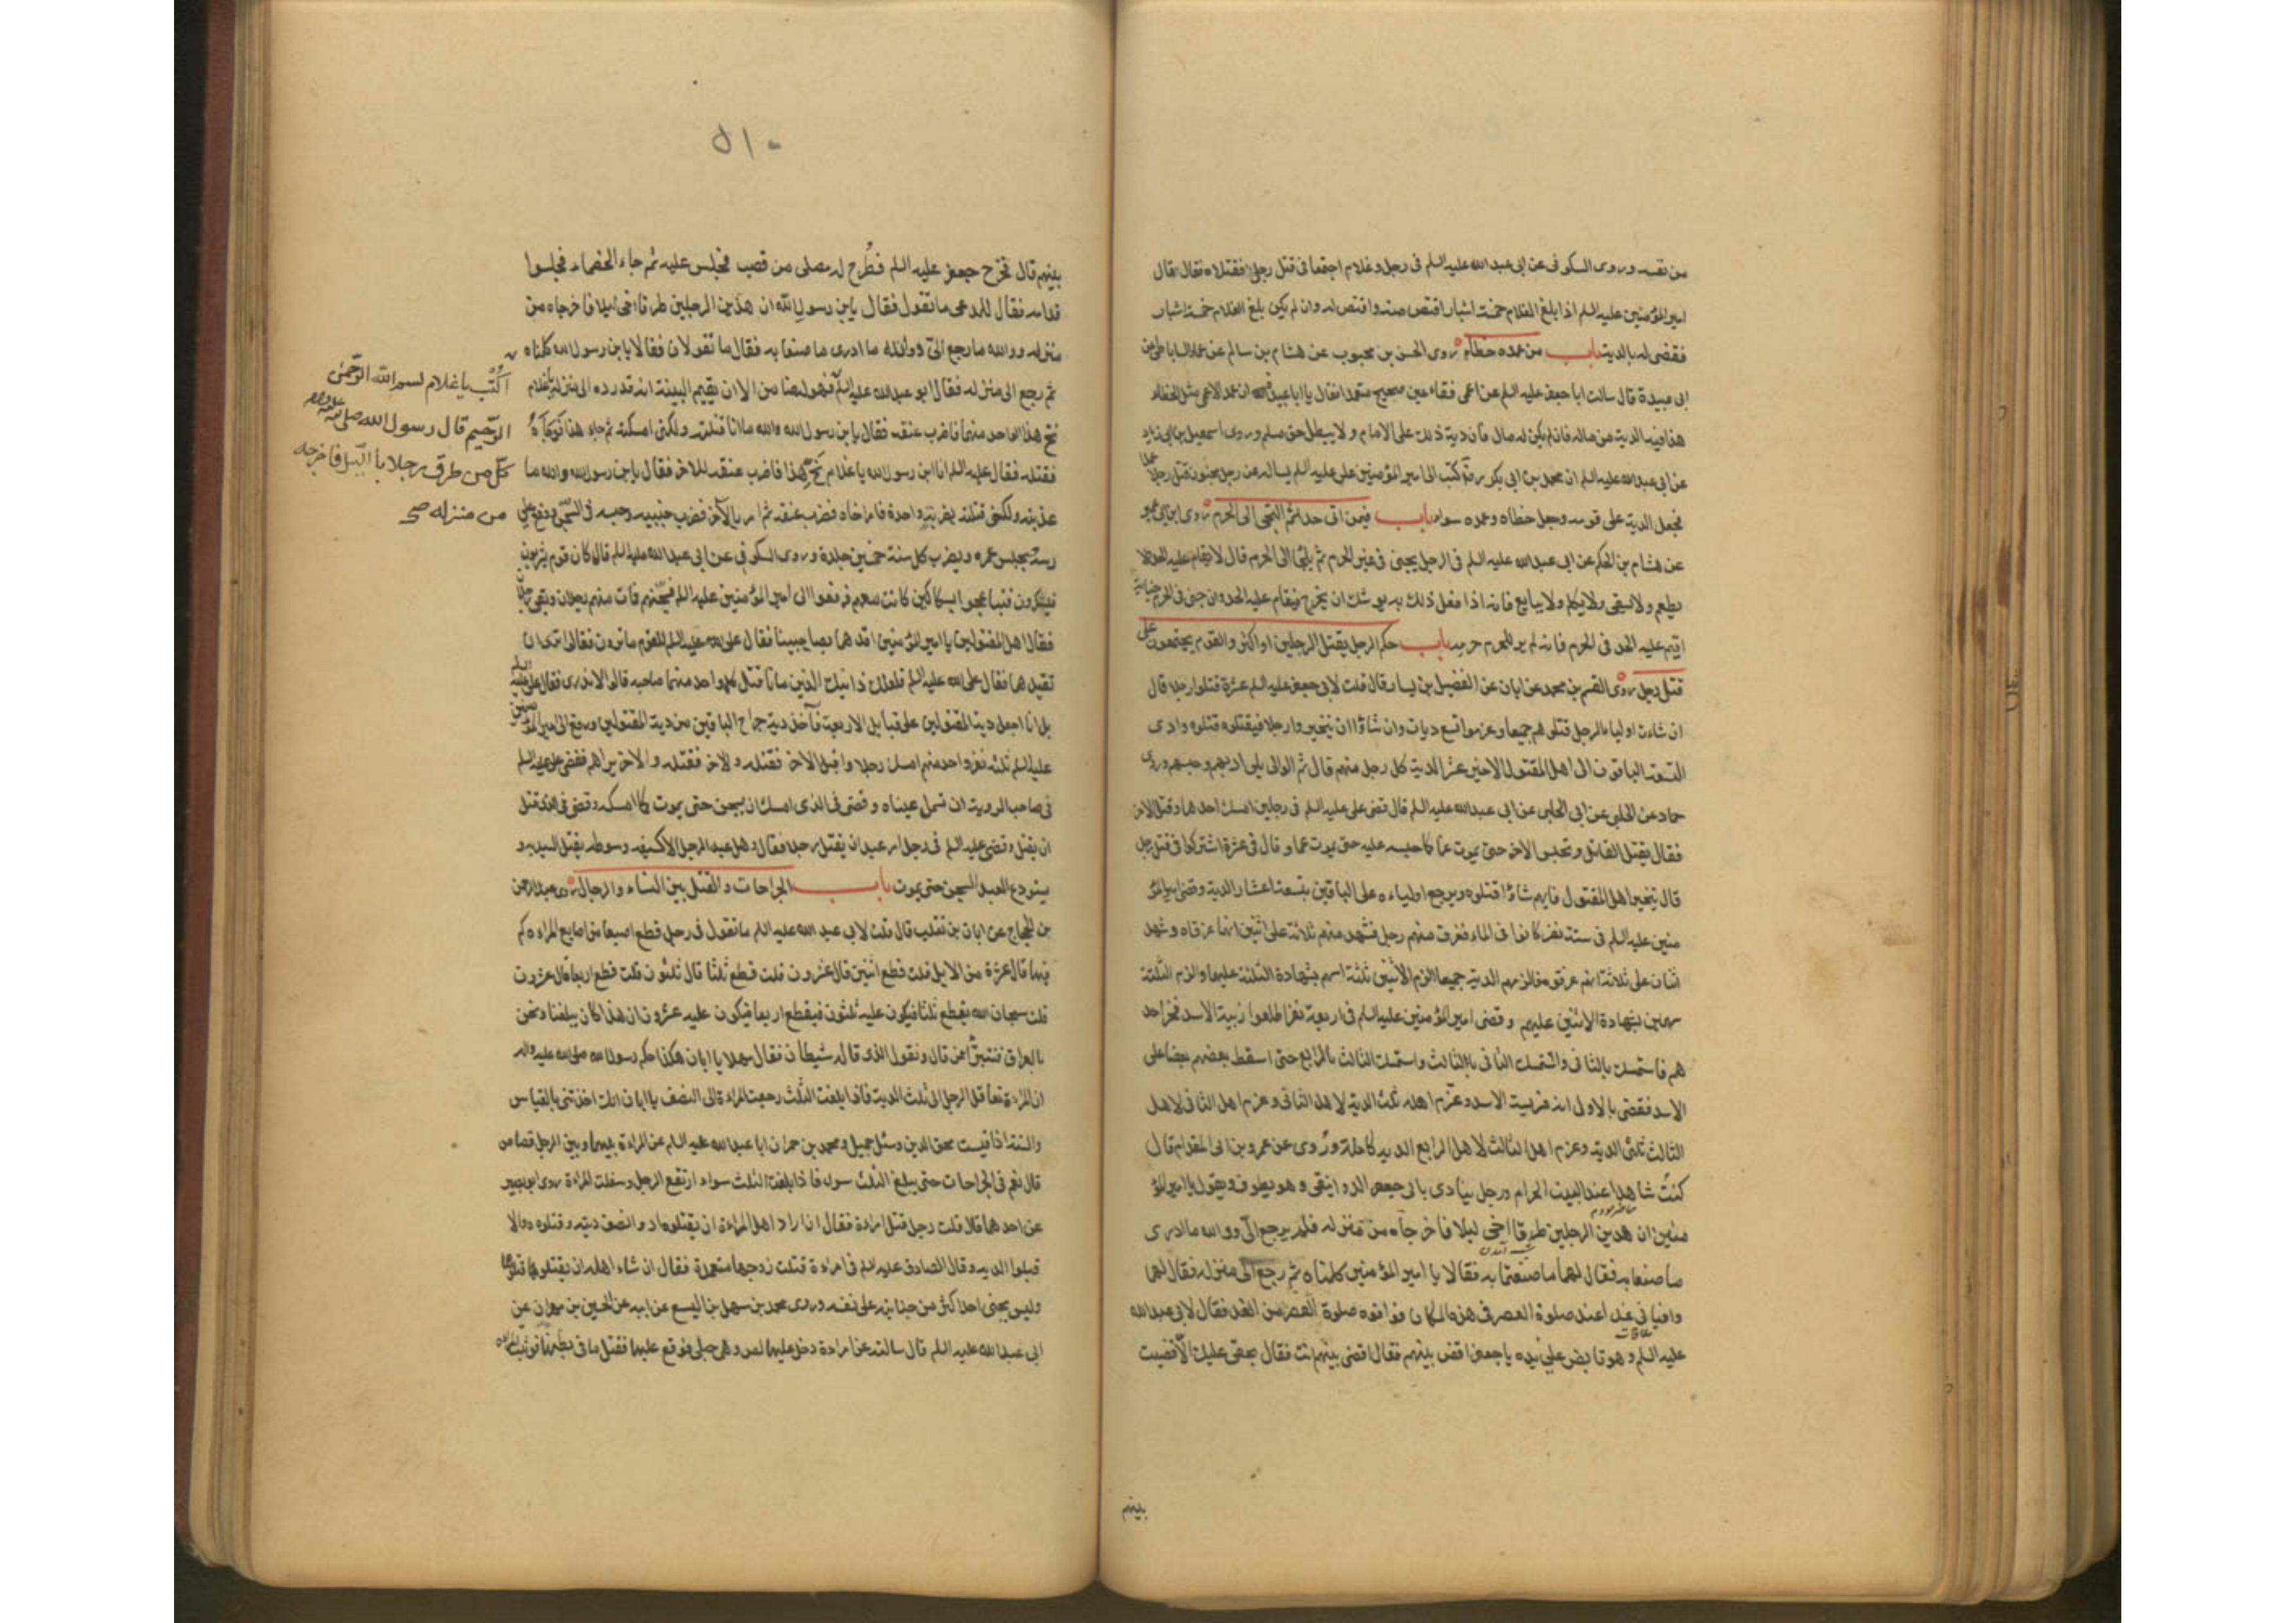 من نفسه وروى السكونى عن ابى عبد الله عليه السلم فى رجل وغلام اجتمعا فى قتل رجل فقتلاه فقال قال
امير المؤمنين عليه السلم اذا بلغ الغلام خمسة اشبار اقتص منه واقتص له وان لم يكن بلغ الغلام خمسة اشبار
فقضى له بالدية باب من عمده خطاء روى الحسن بن محبوب عن هشام بن سالم عن عمار الساباطى عن
ابى عبيدة قال سالت ابا جعفر عليه السلم عن اعمى فقاء عين صحيح متعمدا فقال يا ابا عبيدة ان عمد الاعمى مثل الخطاء
هذا فيه الدية من ماله فان لم يكن له مال فان دية ذلك على الامام ولا يبطل حق مسلم وروى اسمعيل بن ابى زياد
عن ابى عبد الله عليه السلم ان محمد بن ابى بكر ره كتب الى امير المؤمنين على عليه السلم يساله عن رجل مجنون قتل رجلا عمدا
فجعل الدية على قومه وجعل خطاه وعمده سواء باب فيمن اتى حدا ثم التجى الى الحرم روى ابن ابى عمير
عن هشام بن الحكم عن ابى عبد الله عليه السلم فى الرجل يجنى فى غير الحرم ثم يلجٔا الى الحرم قال لا يقام عليه الحد ولا
يطعم ولا يسقى ولا يكلم ولا يبايع فانه اذا فعل ذلك به يوشك ان يخرج فيقام عليه الحد وان جنى فى الحرم جناية
اقيم عليه الحد فى الحرم فانه لم ير للحرم حرمه باب حكم الرجل يقتل الرجلين او اكثر والقوم يجتمعون على
قتل رجل روى القسم بن محمد عن ابان عن الفضيل بن يسار قال قلت لابى جعفر عليه السلم عشرة قتلوا رجلا قال
ان شاء اولياء الرجل قتلوهم جميعا وغرموا تسع ديات وان شاؤا ان يتخيروا رجلا فيقتلوه قتلوه وادى
التسعة الباقون الى اهل المقتول الاخير عشر الدية كل رجل منهم قال ثم الوالى يلى ادبهم وحبسهم وروى
حماد عن الحلبى عن ابى عبد الله عليه السلم قال قضى على عليه السلم فى رجلين امسك احدهما وقتل الاخر
فقال يقتل القاتل ويحبس الاخر حتى يموت غما كما حبسه عليه حتى يموت غما وقال فى عشرة اشتركوا فى قتل رجل
قال يتخير اهل المقتول فايهم شاؤا قتلوه ويرجع اولياءه على الباقين بتسعة اعشار الدية وقضى امير المؤ
منين عليه السلم فى ستة نفر كانوا فى الماء فغرق منهم رجل فشهد منهم ثلاثة على اثنين انهما غرقاه وشهد
اثنان على ثلاثة انهم غرقوه فالزمهم الدية جميعا الزم الاثنين ثلثة اسهم بشهادة الثلثة عليهما والزم الثلثة
سهمين بشهادة الاثنين عليهم وقضى امير المؤمنين عليه السلم فى اربعة نفر اطلعوا زبية الاسد فخر احد
هم فاستمسك بالثانى واستمسك الثانى بالثالث واستمسك الثالث بالرابع حتى اسقط بعضهم بعضا على
الاسد فقضى بالاول انه فريسة الاسد وغرم اهله ثلث الدية لاهل الثانى وغرم اهل الثانى لاهل
الثالث ثلثى الدية وغرم اهل الثالث لاهل الرابع الدية كاملة وروى عن عمرو بن ابى المقدام قال
كنت شاهدا عند البيت الحرام ورجل ينادى بابى جعفر الدوانيقى وهو يطوف ويقول يا امير المؤ
منين ان هذين الرجلين طرقا اخى ليلا فاخرجاه من منزله فلم يرجع الىّ ووالله ما ادرى
ما صنعا به فقال لهما ما صنعتما به فقالا يا امير المؤمنين كلمناه ثم رجع الى منزله فقال لهما
وافيانى غدا عند صلوة العصر فى هذا المكان فوافوه صلوة العصر من الغد فقال لابى عبد الله
عليه السلم وهو قابض على يده يا جعفر اقض بينهم فقال اقض بينهم انت فقال بحقى عليك الا قضيت
بينهم
٥١٠
بينهم قال فخرج جعفر عليه السلم فطرح له مصلى من قصب فجلس عليه ثم جاء الخصماء فجلسوا
قدامه فقال للمدعى ما تقول فقال يا بن رسول الله ان هذين الرجلين طرقا اخى ليلا فاخرجاه من
منزله ووالله ما رجع الىّ ووالله ما ادرى ما صنعا به فقال ما تقولان فقالا يا بن رسول الله كلمناه
ثم رجع الى منزله فقال ابو عبد الله عليه السلم
نح هذا الواحد منهما فاضرب عنقه فقال يا بن رسول الله والله ما انا قتلته ولكنى امسكته ثم جاء هذا فوجاه
فقتله فقال عليه السلم انا ابن رسول الله يا غلام نح هذا فاضرب عنقه للاخر فقال يا بن رسول الله والله ما
عذبته ولكنى قتلته بضربة واحدة فامر اخاه فضرب عنقه ثم امر بالاخر فضرب جنبيه وحبسه فى السجن ووقع على
راسه يحبس عمره ويضرب كل سنة خمسين جلدة وروى السكونى عن ابى عبد الله عليه السلم قال كان قوم يشربون
فيسكرون فتباعجوا بسكاكين كانت معهم فرفعوا الى امير المؤمنين عليه السلم فسجنهم فمات منهم رجلان وبقى رجلان
فقال اهل المقتولين يا امير المؤمنين اقدهما بصاحبينا فقال على عليه السلم للقوم ما ترون فقالوا نرى ان
تقيدهما فقال على عليه السلم فلعل ذانيك الذين ماتا قتل كل واحد منهما صاحبه قالوا لا ندرى فقال على عليه السلم
بل انا اجعل دية المقتولين على قبايل الاربعة فآخذ دية جراح الباقين من دية المقتولين ورفع الى امير المؤمنين
عليه السلم ثلثة نفر واحد منهم امسك رجلا واقبل الاخر فقتله والاخر يراهم فقضى عليه السلم
فى صاحب الروية ان تسمل عيناه وقضى فى الذى امسك ان يسجن حتى يموت كما امسكه وقضى فى الذى قتل
ان يقتل وقضى عليه السلم فى رجل امر عبده ان يقتل رجلا فقال وهل عبد الرجل الا كسيفه وسوطه يقتل السيد به و
يستودع العبد السجن حتى يموت باب الجراحات والقتل بين النساء والرجال روى عبد الرحمن
بن الحجاج عن ابان بن تغلب قال قلت لابى عبد الله عليه السلم ما تقول فى رجل قطع اصبعا من اصابع المراة كم
فيها قال عشرة من الابل قلت قطع اثنين قال عشرون قلت قطع ثلثا قال ثلثون قلت قطع اربعا قال عشرون
قلت سبحان الله يقطع ثلثا فيكون عليه ثلثون فيقطع اربعا فيكون عليه عشرون ان هذا كان يبلغنا ونحن
بالعراق فنتبرٔا ممن قال ونقول الذى قاله شيطان فقال مهلا يا ابان هكذا حكم رسول الله صلى الله عليه واله
ان المراة تعاقل الرجل الى ثلث الدية فاذا بلغت الثلث رجعت المراة الى النصف يا ابان انك اخذتنى بالقياس
والسنة اذا قيست محق الدين وسئل جميل ومحمد بن حمران ابا عبد الله عليه السلم عن المراة بينها وبين الرجل قصاص
قال نعم فى الجراحات حتى يبلغ الثلث سواء فاذا بلغت الثلث سواء ارتفع الرجل وسفلت المراة روى ابو بصير
عن احدهما قال قلت رجل قتل امراة فقال ان اراد اهل المراة ان يقتلوه ادوا نصف ديته وقتلوه والا
قبلوا الدية وقال الصادق عليه السلم فى امراة قتلت زوجها متعمدة فقال ان شاء اهله ان يقتلوها قتلوها
وليس يجنى احد اكثر من جنايته على نفسه وروى محمد بن سهل بن اليسع عن ابيه عن الحسين بن مهران عن
ابى عبد الله عليه السلم قال سالته عن امراة دخل عليها لص وهى حبلى فوقع عليها فقتل ما فى بطنها فوثبت المراة
اكتب يا غلام بسم الله الرحمن
الرحيم قال رسول الله صلى الله عليه واله
كل من طرق رجلا بالليل فاخرجه
من منزله صح